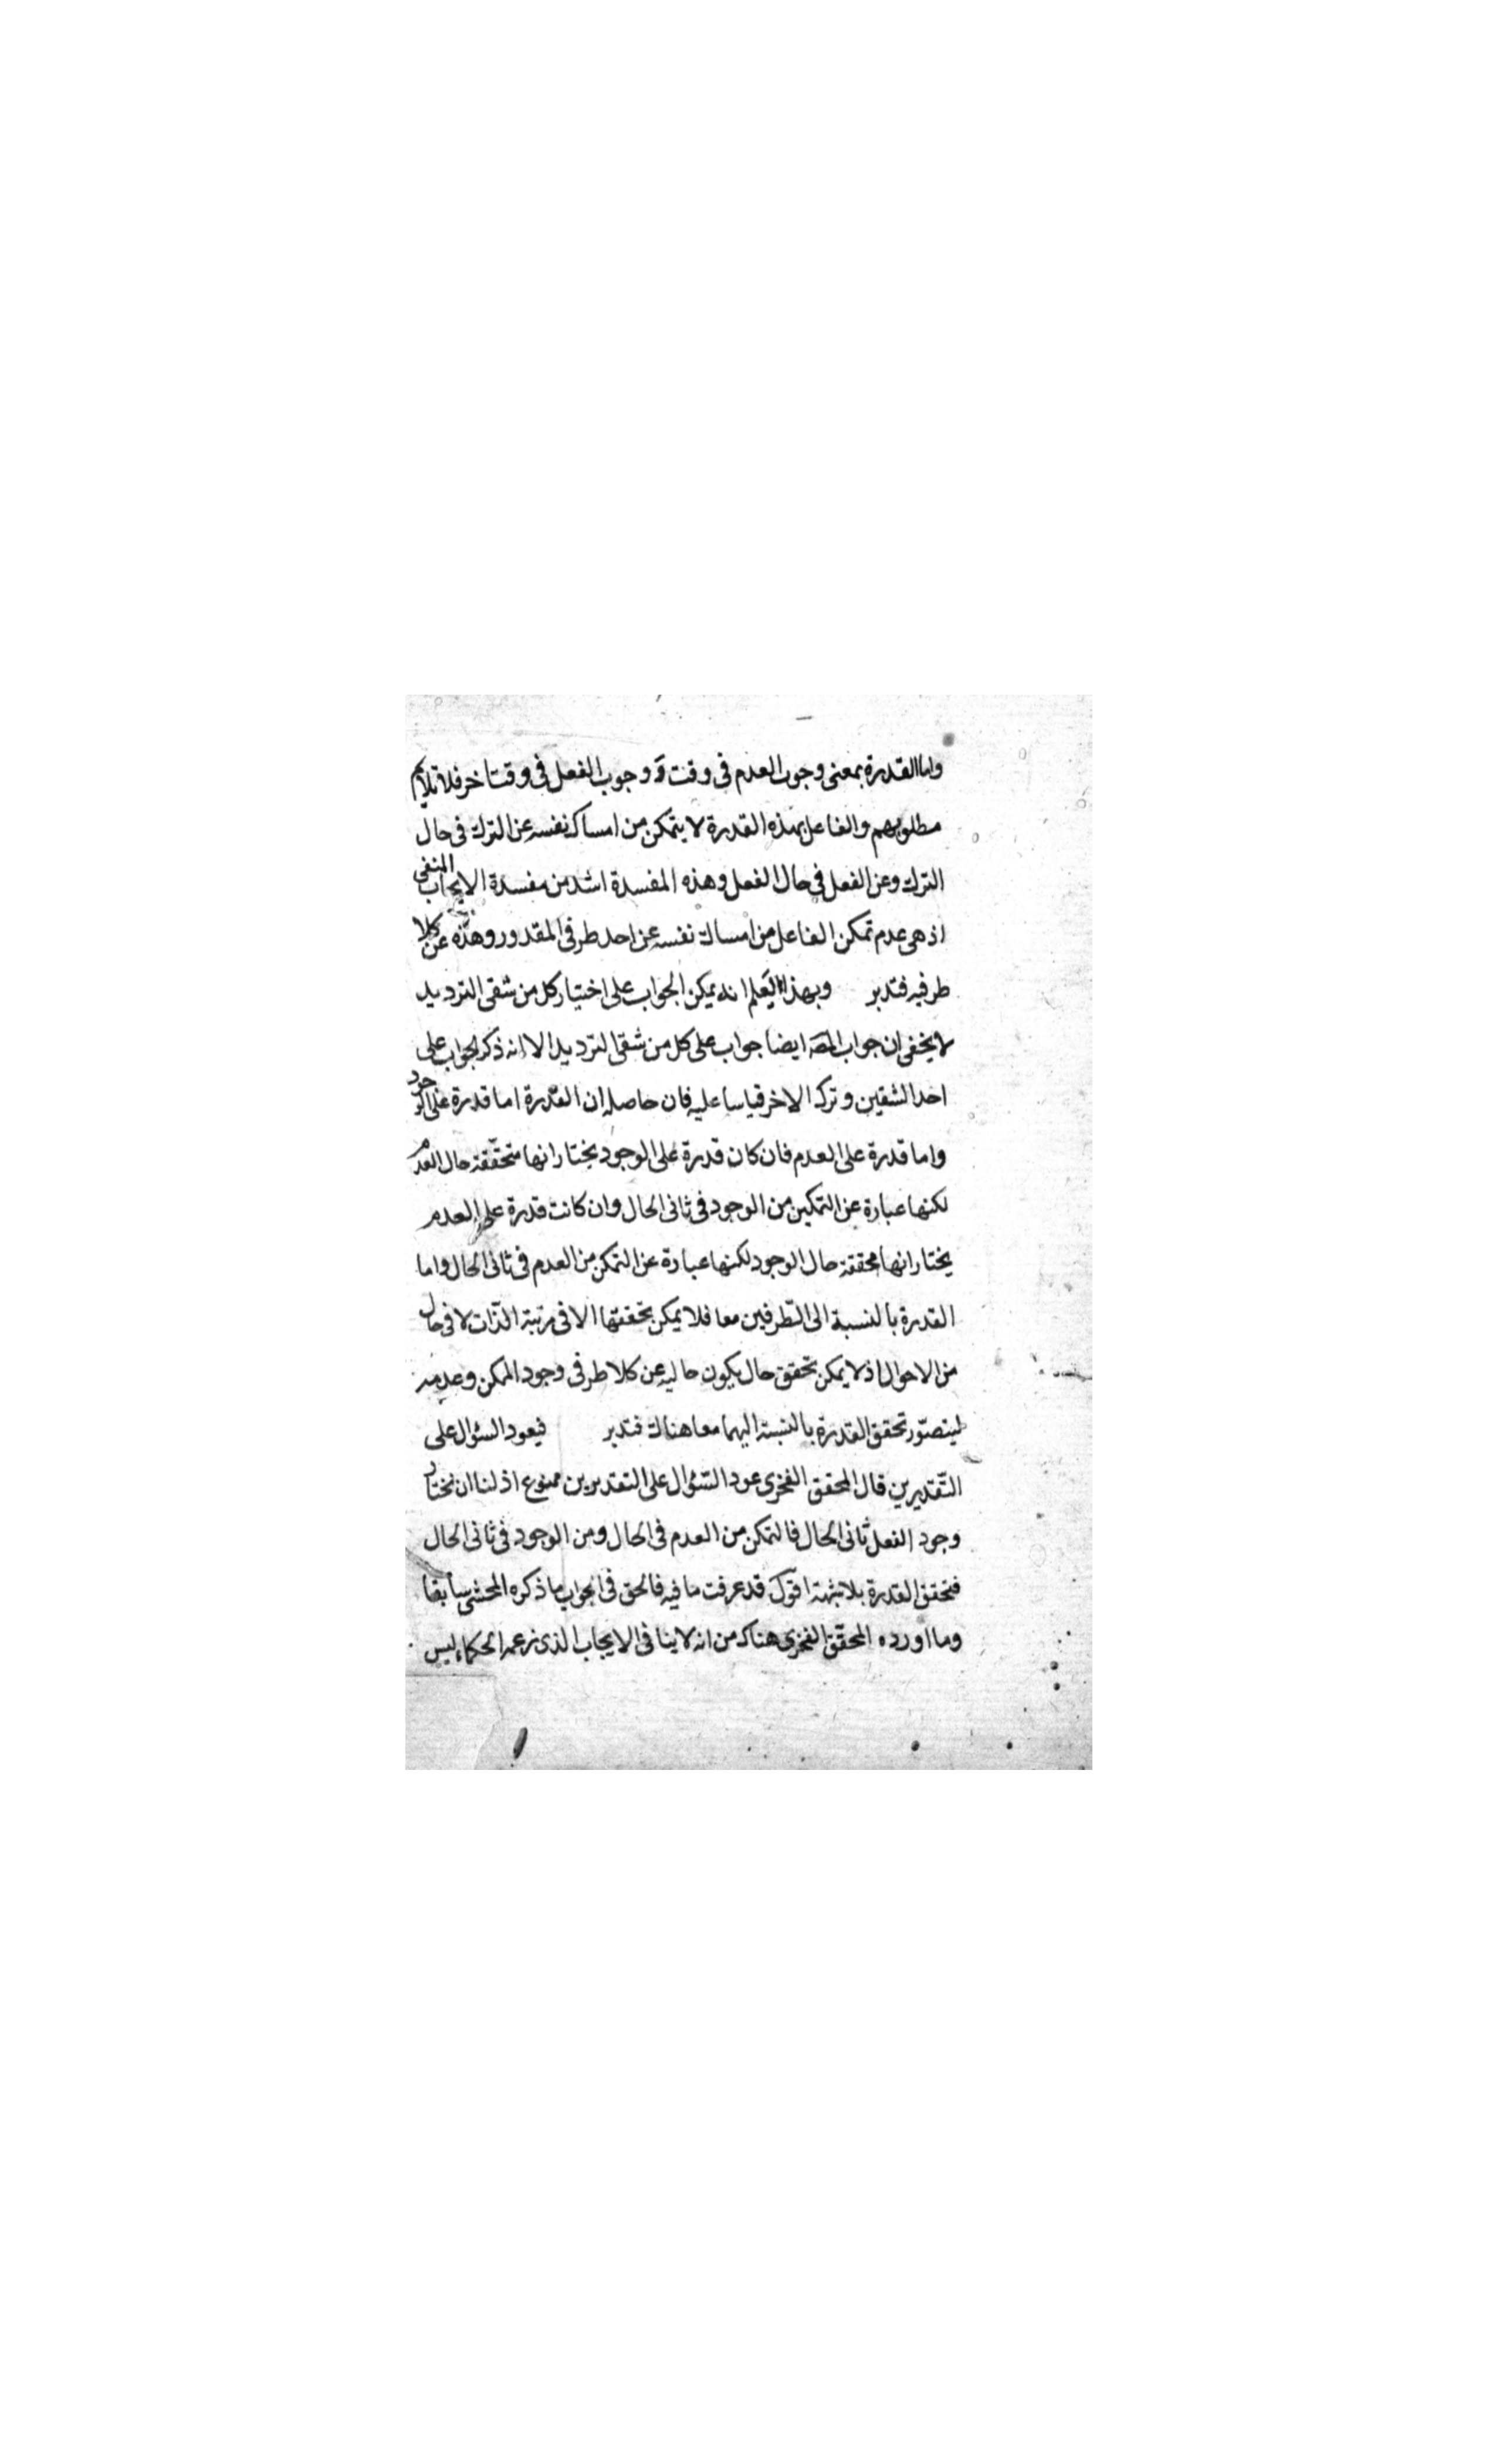 واما القدرة بمعنى وجوب العدم فى وقت و وجوب الفعل فى وقت اخر فلا تلايم
مطلوبهم والفاعل بهذه القدرة لا يتمكن من امساك نفسه عن الترك فى حال
الترك وعن الفعل فى حال الفعل وهذه المفسدة اشد من مفسدة الايجاب المنفى
اذ هى عدم تمكن الفاعل من امساك نفسه عن احد طرفى المقدور وهذه عن كلا
طرفيه فتدبر وبهذا يعلم انه يمكن الجواب على اختيار كل من شقى الترديد
لا يخفى ان جواب المصه ايضا جواب على كل من شقى الترديد الا انه ذكر الجواب على
احد الشقين وترك الاخر قياسا عليه فان حاصله ان القدرة اما قدرة على الوجود
واما قدرة على العدم فان كان قدرة على الوجود يختار انها متحققة حال العدم
لكنها عبارة عن التمكين من الوجود فى ثانى الحال وان كانت قدرة على العدم
يختار انها محققة حال الوجود لكنها عبارة عن التمكن من العدم فى ثانى الحال واما
القدرة بالنسبة الى الطّرفين معا فلا يمكن تحققها الا فى مرتبة الذّات لا فى حال
من الاحوال اذ لا يمكن تحقق حال يكون خاليه عن كلا طرفى وجود الممكن وعدمه
ليتصوّر تحقق القدرة بالنسبة اليهما معا هناك فتدبر فيعود السؤال على
التّقديرين قال المحقق الفخرى عود السّؤال على التقديرين ممنوع اذ لنا ان نختار
وجود الفعل ثانى الحال فالتمكن من العدم فى الحال ومن الوجود فى ثانى الحال
فتحقق القدرة بلا شبهة اقول قد عرفت ما فيه فالحق فى الجواب ما ذكره المحشى سابقا
وما اورده المحقّق الفخرى هناك من انه لا ينافى الايجاب الذى زعمه الحكماء ليس